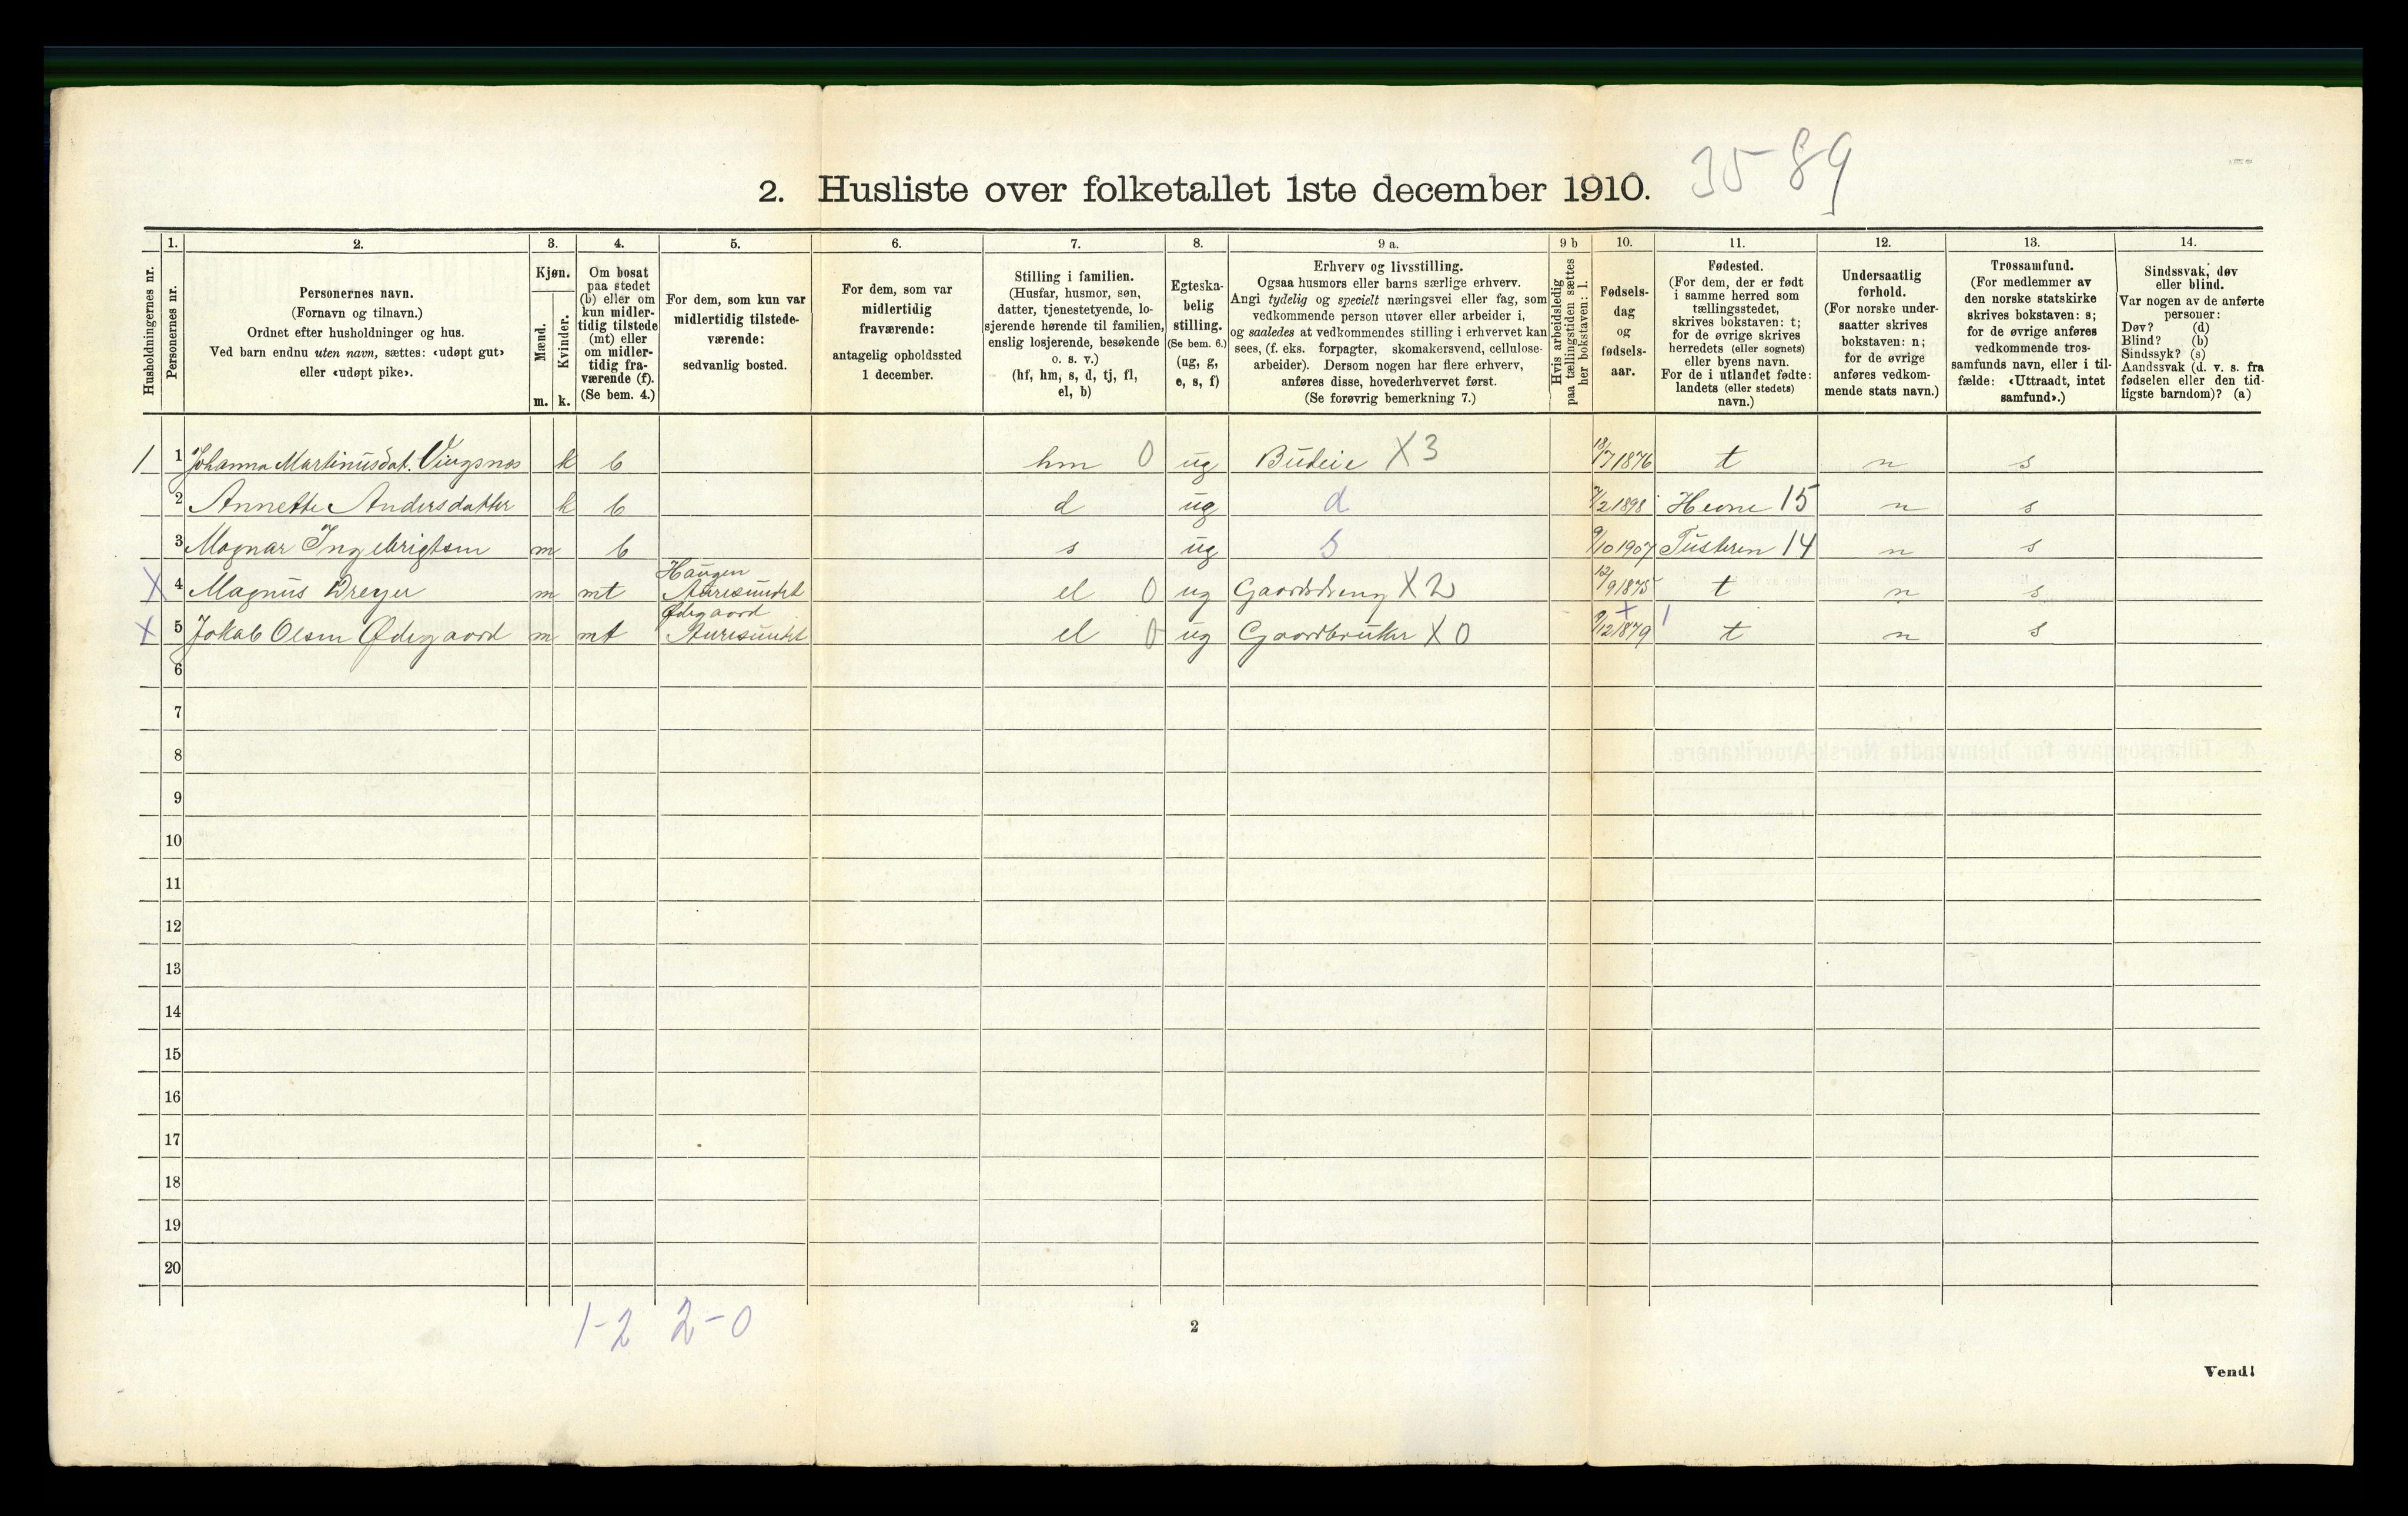 2. Husliste over folketallet 1ste december 1910. 35 89
Husholdningernes nr.
1. Personernes nr.
2. Personernes navn.
(Fornavn og tilnavn.)
Ordnet efter husholdninger og hus.
Ved barn endnu uten navn, sættes: «udøpt gut»
eller «udøpt pike».
3. Kjøn.
Mænd. Kvinder.
m. k.
4. Om bosat
paa stedet
(b) eller om
kun midler-
tidig tilstede
(mt) eller
om midler-
tidig fra-
værende (f).
(Se bem. 4.)
5. For dem, som kun var
midlertidig tilstede-
værende:
sedvanlig bosted.
6. For dem, som var
midlertidig
fraværende:
antagelig opholdssted
1 december.
7. Stilling i familien.
(Husfar, husmor, søn,
datter, tjenestetyende, lo-
sjerende hørende til familien,
enslig losjerende, besøkende
o. s. v.)
(hf, hm, s, d, tj, fl,
el, b)
8. Egteska-
belig
stilling.
(Se bem. 6.)
(ug, g,
e, s, f)
9 a. Erhverv og livsstilling.
Ogsaa husmors eller barns særlige erhverv.
Angi tydelig og specielt næringsvei eller fag, som
vedkommende person utøver eller arbeider i,
og saaledes at vedkommendes stilling i erhvervet kan
sees, (f. eks. forpagter, skomakersvend, cellulose-
arbeider). Dersom nogen har flere erhverv,
anføres disse, hovederhvervet først.
(Se forøvrig bemerkning 7.)
9 b Hvis arbeidsledig
paa tællingstiden sættes
her bokstaven: l.
10. Fødsels-
dag
og
fødsels-
aar.
11. Fødested.
(For dem, der er født
i samme herred som
tællingsstedet,
skrives bokstaven: t;
for de øvrige skrives
herredets (eller sognets)
eller byens navn.
For de i utlandet fødte:
landets (eller stedets)
navn.)
12. Undersaatlig
forhold.
(For norske under-
saatter skrives
bokstaven: n;
for de øvrige
anføres vedkom-
mende stats navn.)
13. Trossamfund.
(For medlemmer av
den norske statskirke
skrives bokstaven: s;
for de øvrige anføres
vedkommende tros-
samfunds navn, eller i til-
fælde: «Uttraadt, intet
samfund».)
14. Sindssvak, døv
eller blind.
Var nogen av de anførte
personer:
Døv? (d)
Blind? (b)
Sindssyk? (s)
Aandssvak (d. v. s. fra
fødselen eller den tid-
ligste barndom)? (a)
1 1 Johanna Martinusdat. Vingsnos k b hm 0 ug Budeie X 3 18/7 1876 t n s
2 Annette Andersdatter k b d ug d 7/2 1898 Hevne 15 n s
3 Magnar Ingebrigtsen m b s ug S 9/10 1907 Tusteren 14 n s
X 4 Magnus Dreyer m mt Haugen Auresundet el 0 ug Gaardsdreng X 2 12/9 1875 t n s
X 5 Jokab Olsen Ødegaard m mt Ødegaard Auresundet el 0 ug Gaardbruker X 0 9/12 1879 t n s
6
7
8
9
10
11
12
13
14
15
16
17
18
19
20
1-2 2-0
2
Vend!